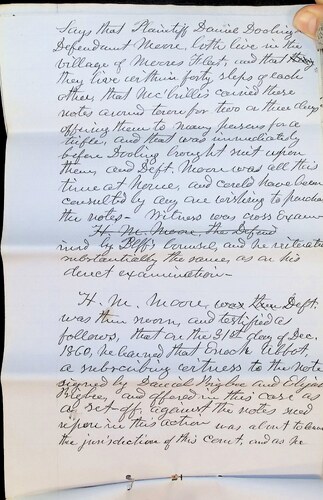 Says that Plaintiff Daniel Dooling &
Defendant Moore, both live in the
village of Moores Flat, and that
they live within forty steps of each
other, that McCrillis carried these
notes around town for two or three days
offering them to many persons for a
trifle, and that was immediately
before Dooling brought suit upon
them, and Deft. Moore was all this
time at home, and could have been
consulted by any one wishing to purchase
the notes - Witness was cross Exam-
H. M. Moore, the Defend
ined by Plffs Counsel, and he reiterated
substantially the same, as on his
direct examination -
H. M. Moore, was then Deft.
was then sworn, and testified as
follows, that on the 31st day of Dec.
1860, he learned that Enoch Abbot,
a subscribing witness to the Note
signed by Daniel Bigbee and Elijah
Bigbee, and offered in this case as
a set off, against the notes sued
upon in this action was about to leave
the jurisdiction of this Court, and as he